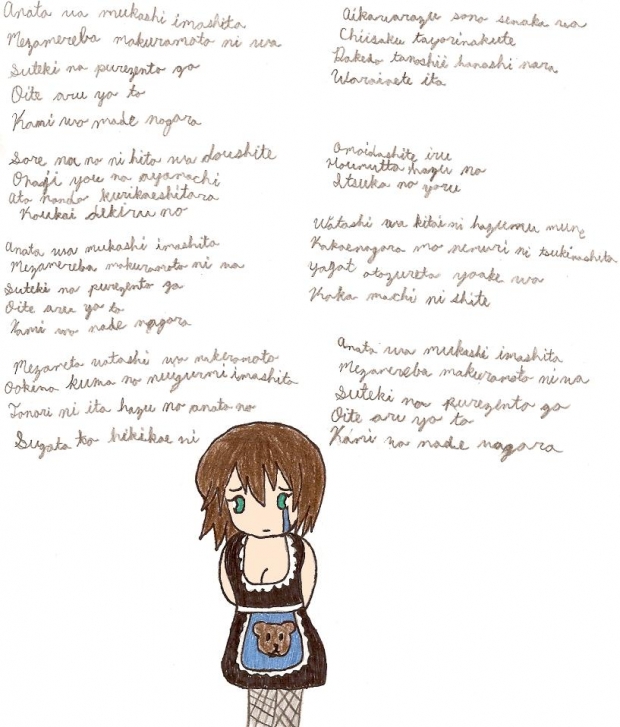 Anata wa mukashi imashita
Mezamereba makuramoto ni wa
Suteki na purezento ga
Oite aru ya to
Kami wo made nagara
Sore na no ni hito wa doushite
Onaji you na ayamachi
Ato nando kurikaeshitara
Koukai dekiru no
Anata wa mukashi imashita
Mezamereba makuramoto ni wa
Suteki na purezento ga
Oite aru yo to
Kami wo nade nagara
Mezameta watashi wa makuramoto
Ookina kuma no nuugurmi imashita
Tonari ni ita hazu no anata no
Sugata to hikikae ni
Aikawarazu sono senaka wa
Chiisaku tayorinakute
Dakedo tanoshii hanashi nara
Waraiaete ita
Omoidashite iru
Itsuka no yoru
Watashi wa kitai ni hazumu mune
Kakaenagara mo nemuri ni tsukimashita
Yagat otozureta yoake wa
Koka machi ni shite
Anata wa mukashi imashita
Mezamereba makuramoto ni wa
Suteki na purezento ga
Oite aru yo to
Kami wa nade nagara